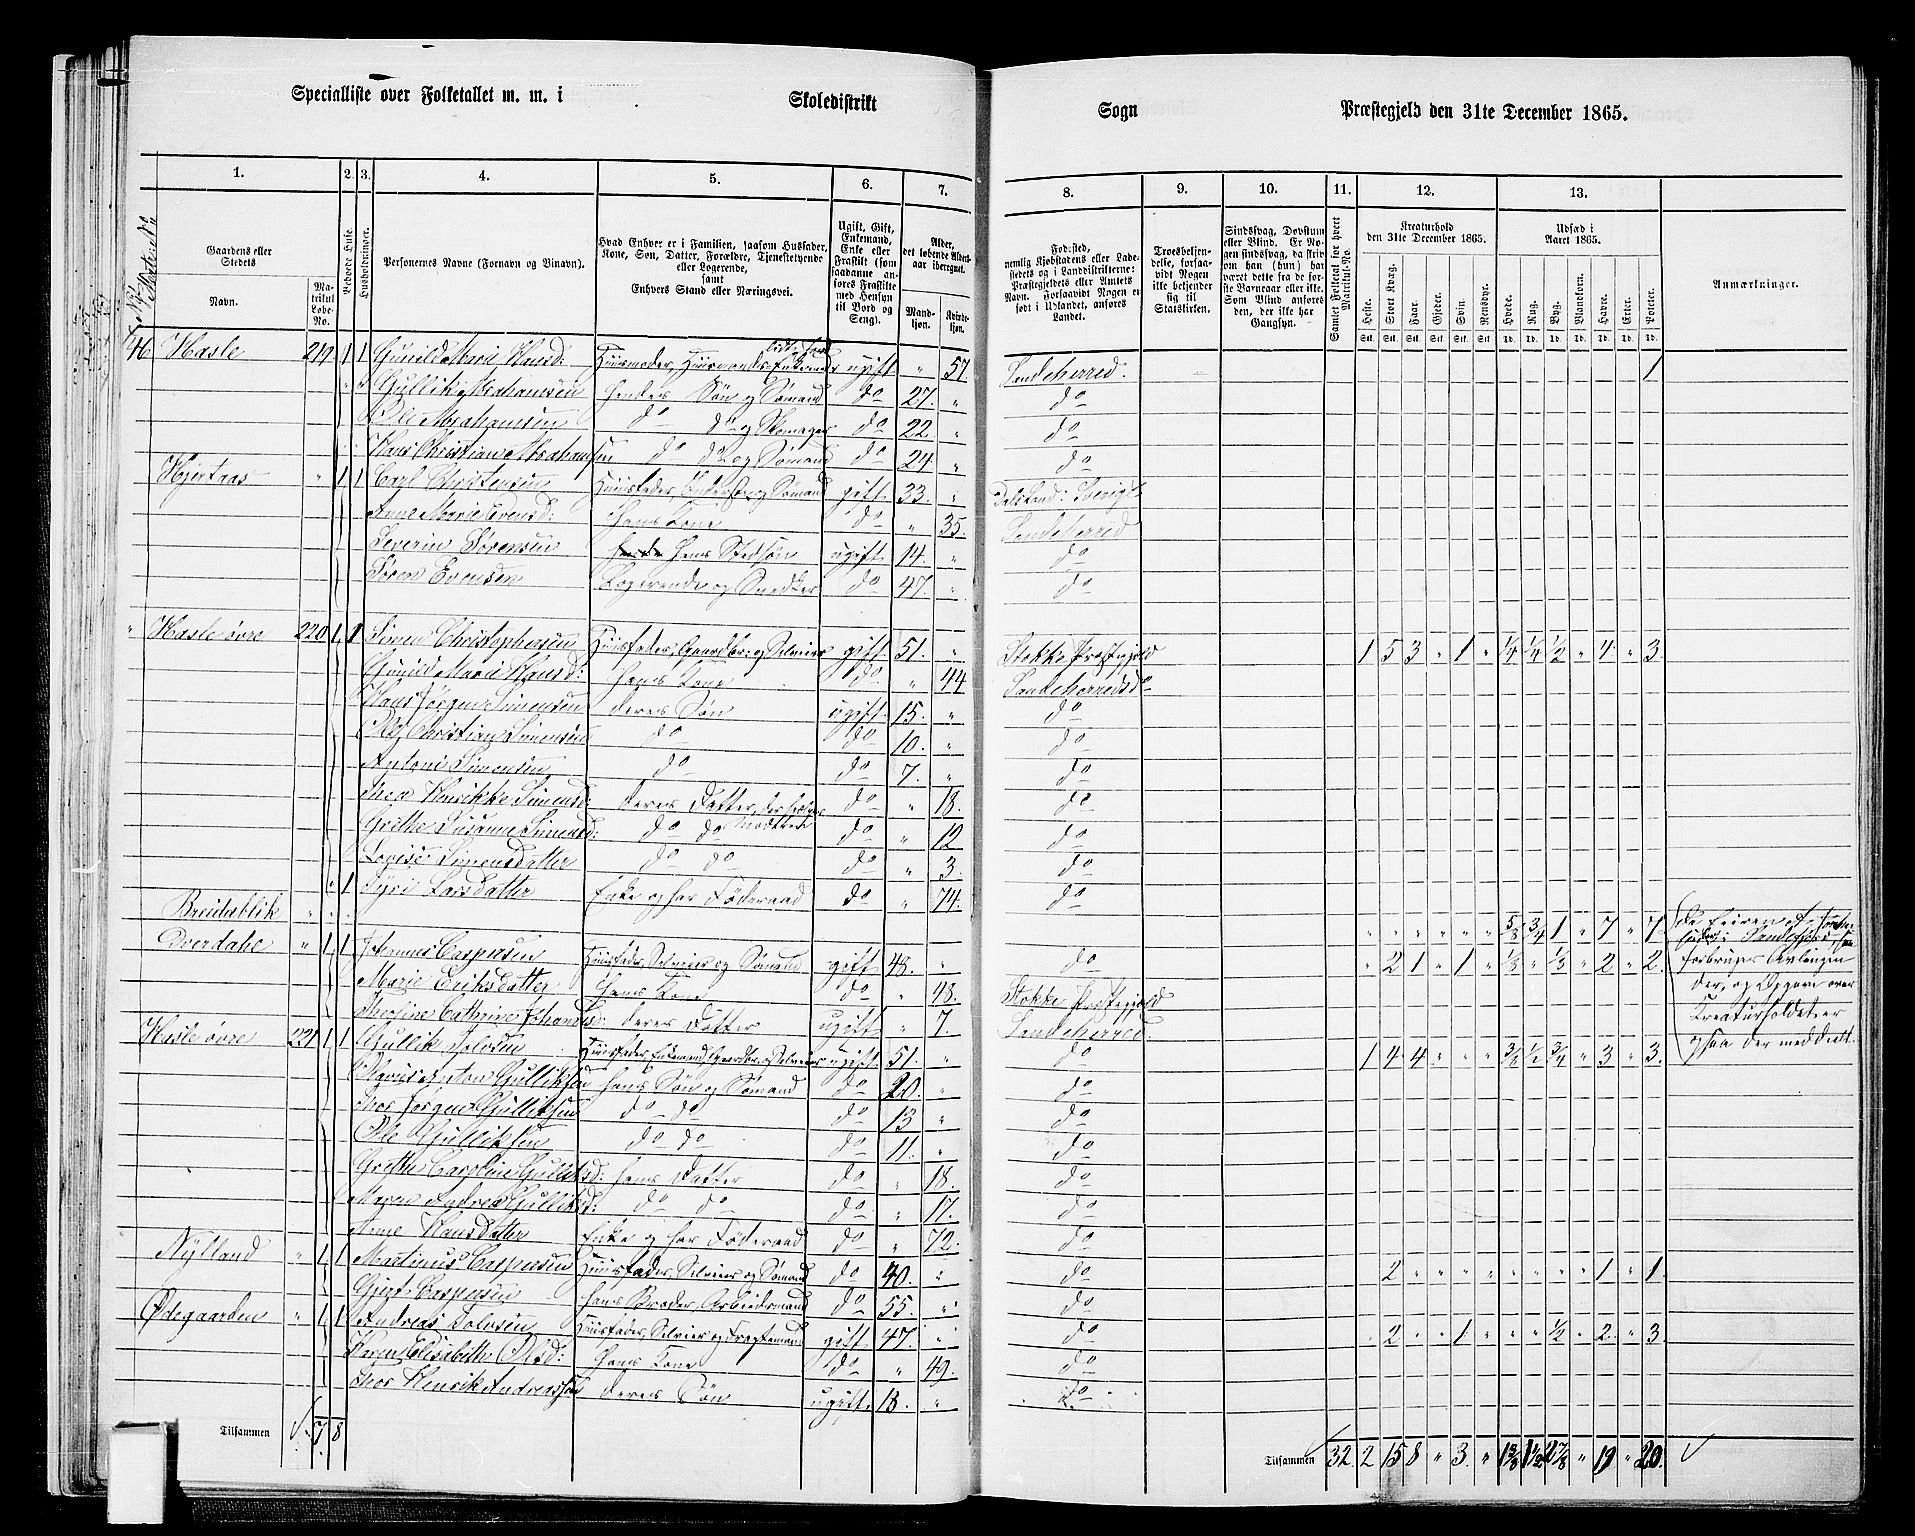 Specialliste over Folketallet m. m. i Skoledistrikt Sogn Præstegjeld den 31te December 1865.
1. 2. 3. 4. 5. 6. 7. 8. 9. 10. 11. 12. 13.
Gaardens eller Stedets
Navn. Matrikul Løbe-No.
Beboede Huse.
Husholdninger.
Personernes Navne (Fornavn og Vinavn).
Hvad Enhver er i Familien, saasom Husfader, Kone, Søn, Datter, Forældre, Tjenestetyende eller Logerende, samt Enhvers Stand eller Næringsvei.
Ugift, Gift, Enkemand, Enke eller Fraskilt (som saadanne anføres Fraskilte med Hensyn til Bord og Seng).
Alder, det løbende Aldersaar iberegnet.
Mandkjøn. Kvindekjøn.
Fødested, nemlig Kjøbstadens eller Ladestedets og i Landdistrikterne: Præstegjeldets eller Amtets Navn. Forsaavidt Nogen er født i Udlandet, anføres Landet.
Troesbekjendelse, forsaavidt Nogen ikke bekjender sig til Statskirken.
Sindssvag, Døvstum eller Blind. Er Nogen sindssvag, da skrives om han (hun) har været dette fra de første Barneaar eller ikke. Som Blind anføres den, der ikke har Gangsyn.
Samlet Folketal for hvert Matrikul-No.
Kreaturhold den 31te December 1865.
Heste. Stort Kvæg. Faar. Gjeder. Svin. Rensdyr.
Udsæd i Aaret 1865.
Hvede. Rug. Byg. Blandkorn. Havre. Erter. Poteter.
Anmærkninger.
46 Hasle 219 1 1 Gunild Marie Hansd: Huusmoder, Huusmands Enke ugift " 57. Sandeherred. 1
" " Gullik Abrahamsen hendes Søn og Sømand do 27. " do
Ole Abrahamsen do do og Skomager do 22 " do
Hans Christian Abrahamsen do do og Sømand do 24 " do
Hjertaas " 1 1 Carl Christensen Huusfader, og Sømand gift 33. " Dalsland: Sverige
Anne Marie Evensd: hans Kone do " 35. Sandeherred
Severin Sørensen hans Stedsøn ugift 14. " do
Søren Evensen Logerende og Snedker do 47. " do
" Hasle øvre 220 1 1 Simen Christophersen Huusfader, Gaardbr: og Selveier gift 51. " Stokke Præstegjeld 1 5 3 " 1 " 1/4 1/4 1/2 " 4 " 3.
Gunild Marie Hansd: hans Kone do " 44 Sandeherred do
Hans Jørgen Simensen deres Søn ugift 15. " do
Ole Christian Simensen do do 10. " do
Antoni Simensen do do 7. " do
Thea Henrikke Simensd: deres Datter, do " 18. do
Grethe Susanne Simensd: do do do " 12 do
Lovise Simensdatter do do do " 3. do
" 1 Syri Larsdatter Enke og har Føderaad do " 74. do
Breidablik " " " " " " " " " 5/8 3/4 1 " 7 " 7
Dverdahl " 1 1 Johannes Caspersen Huusfader, Selveier og Sømand gift 48. " do " 2 1 " 1 " 1/3 " 1/3 " 2 " 2.
Marie Eriksdatter hans Kone do " 48. Stokke Præstegjeld
Thersine Cathrine Johannesd: deres Datter ugift " 7. Sandeherred.
Hasle øvre 221 1 1 Gullik Tolvsen Huusfader, Enkemand Gaardbr. og Selveier ugift 51. " do 1 4 4. " " " 3/8 1/2 3/4 " 3 " 3.
Anton Gulliksen hans Søn og Sømand do 20. " do
Thor Jørgen Gulliksen do do do 13 " do
Ole Gulliksen do do do 11. " do
Grethe Caroline Gulliksd: hans Datter do " 18. do
Maren Andrea Gulliksd: do do do " 17. do
Anne Hansdatter Enke og har Føderaad do " 72. do
Nylland " 1 1 Martinus Caspersen Huusfader, Selveier og Sømand do 40. " do " 2 " " " " " " " " 1 " 1
Gjert Caspersen hans Broder, Arbeidsmand do 55. " do
Ødegaarden " 1 1 Andreas Tolvsen Huusfader, Selveier og gift 47. " do " 2 " " 1 " " " 1/2 " 2. " 3
Karen Elisabeth Olsd: hans Kone do " 49. do
Thor Henrik Andreassen deres Søn ugift 18. " do
De Eieren af i Sandefjord forbruger Avlingen der, og Opgave over Kreaturholdet er ogsaa der meddelt.
Tilsammen 7. 8
Tilsammen 32. 2 15 8 " 3. " 1 3/8 1 1/2 2 7/8 " 19 " 20.